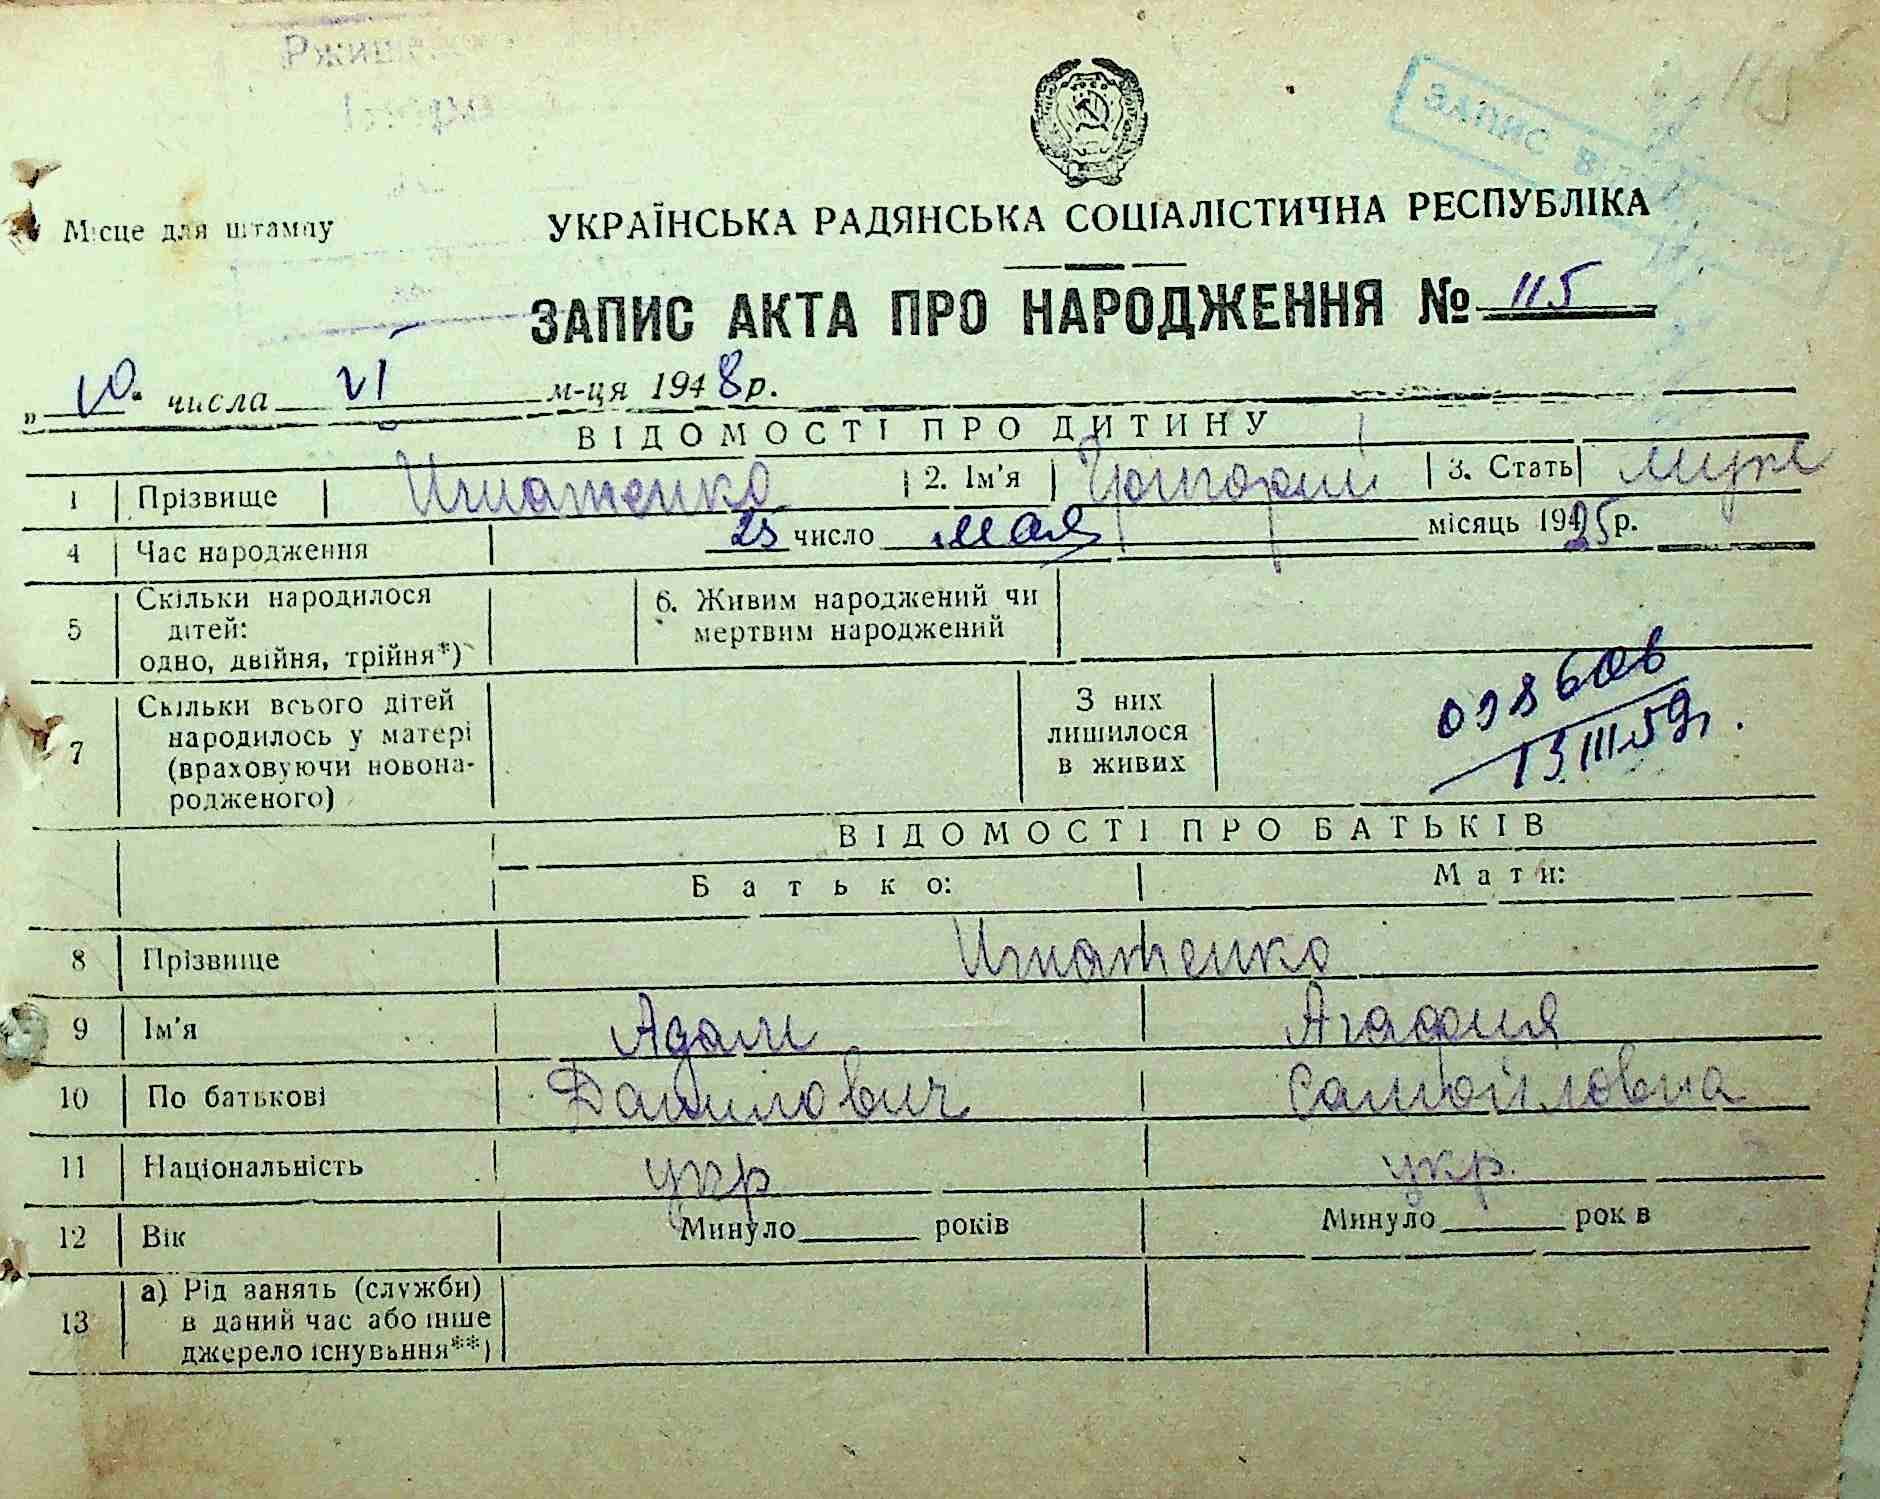 115
ЗАПИС
Місце для штампу
УКРАЇНСЬКА РАДЯНСЬКА СОЦІАЛІСТИЧНА РЕСПУБЛІКА
ЗАПИС АКТА ПРО НАРОДЖЕННЯ № 115
„10“ числа VI м-ця 1948 р.
ВІДОМОСТІ ПРО ДИТИНУ
1 Прізвище Игнатенко 2. Ім'я Григорий 3. Стать муже
4 Час народження 25 число мая місяць 1925 р.
5 Скільки народилося дітей: одно, двійня, трійня*) 6. Живим народжений чи мертвим народжений
7 Скільки всього дітей народилось у матері (враховуючи новонародженого) З них лишилося в живих
098606
13 III 59 г.
ВІДОМОСТІ ПРО БАТЬКІВ
Батько: Мати:
8 Прізвище Игнатенко
9 Ім'я Адам Агафия
10 По батькові Данилович Самойловна
11 Національність укр укр.
12 Вік Минуло років Минуло рок в
13 а) Рід занять (служби) в даний час або інше джерело існування**)